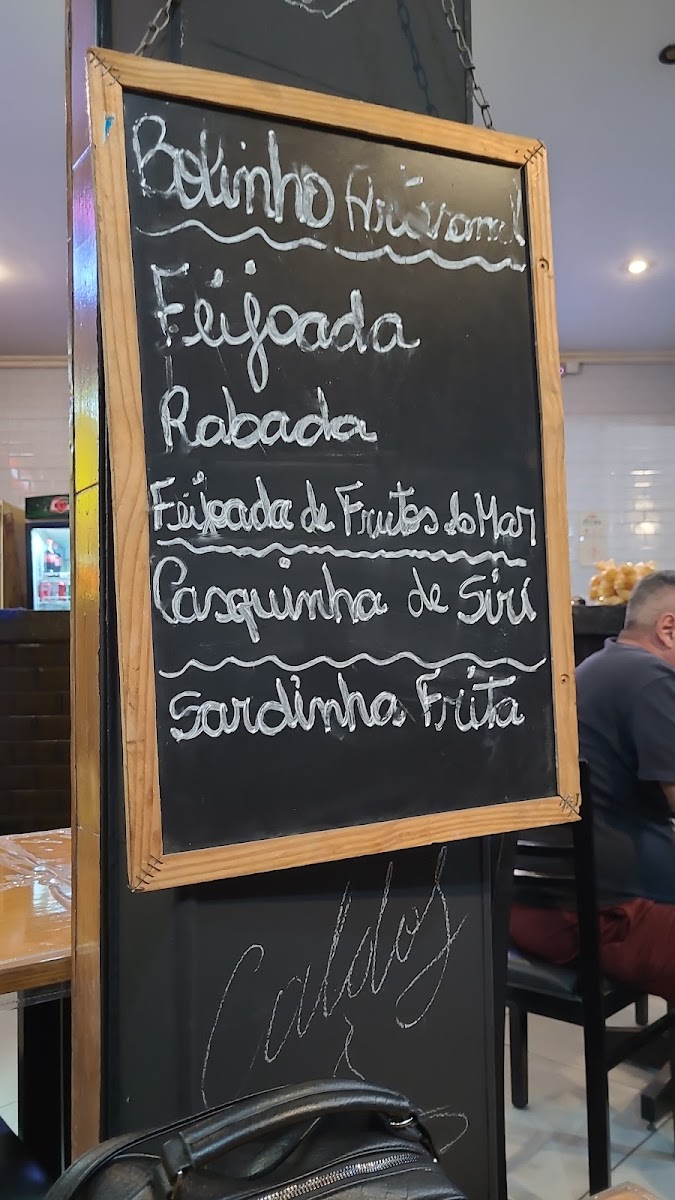 Bolinho Artesanal
Feijoada
Rabada
Feijoada de Frutos do Mar
Casquinha de Siri
Sardinha Frita
Caldos